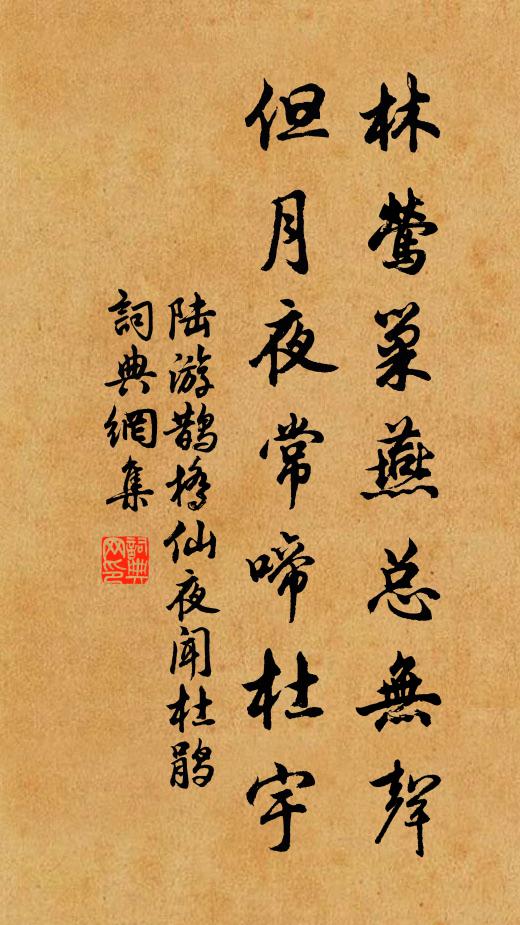 林鶯巢燕总無聲
但月夜常啼杜宇
陆游鹊橋仙夜闻杜鹃
詞典網集
詞典
网印